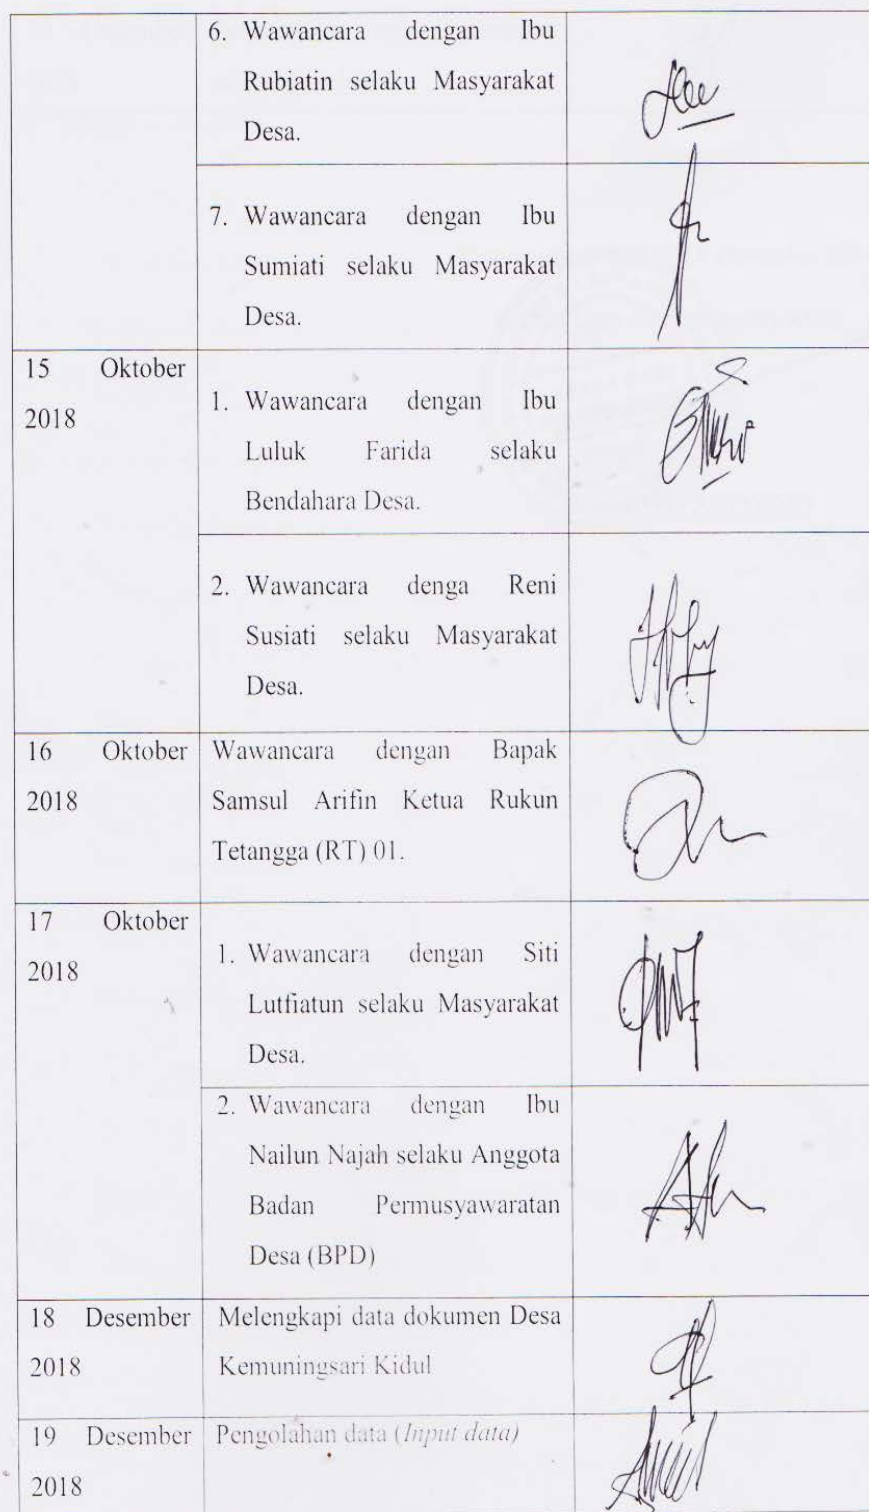 6. Wawancara dengan Ibu
Rubiatin selaku Masyarakat
Desa.
7. Wawancara dengan Ibu
Sumiati selaku Masyarakat
Desa.
15 Oktober
2018
1. Wawancara dengan Ibu
Luluk Farida selaku
Bendahara Desa.
2. Wawancara denga Reni
Susiati selaku Masyarakat
Desa.
16 Oktober
2018
Wawancara dengan Bapak
Samsul Arifin Ketua Rukun
Tetangga (RT) 01.
17 Oktober
2018
1. Wawancara dengan Siti
Lutfiatun selaku Masyarakat
Desa.
2. Wawancara dengan Ibu
Nailun Najah selaku Anggota
Badan Permusyawaratan
Desa (BPD)
18 Desember
2018
Melengkapi data dokumen Desa
Kemuningsari Kidul
19 Desember
2018
Pengolahan data (Input data)